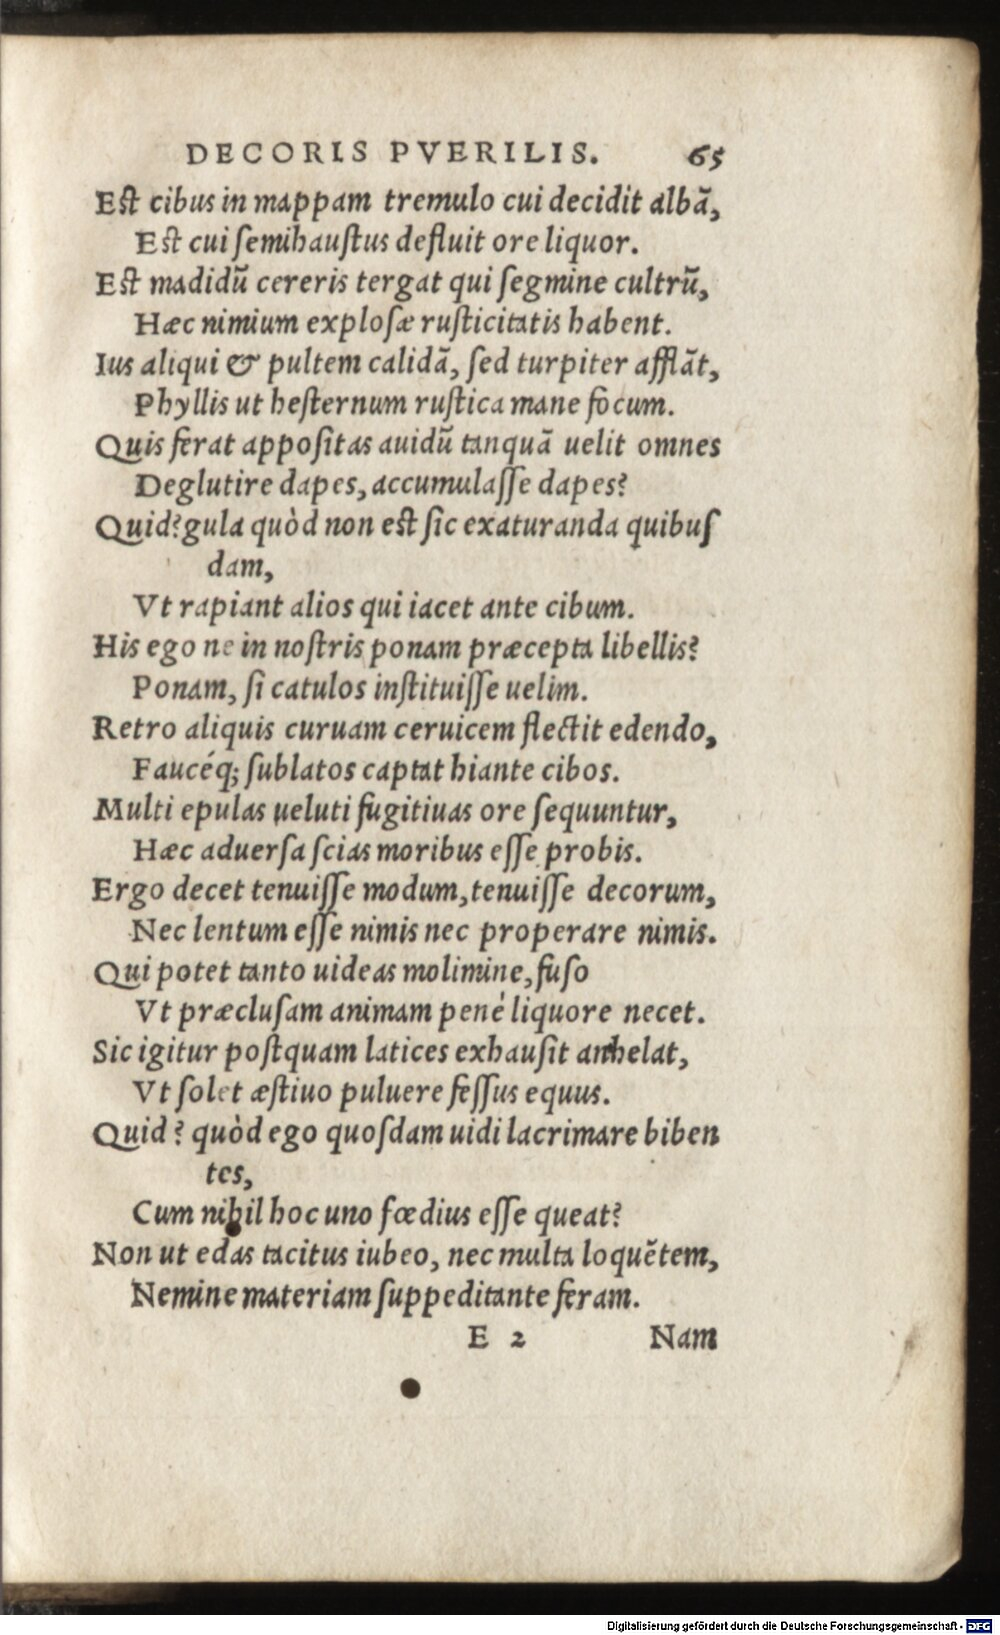 DECORIS PVERILIS. 65
Est cibus in mappam tremulo cui decidit albā,
Est cui ſemihauſtus defluit ore liquor.
Est madidū cereris tergat qui ſegmine cultrū,
Hæc nimium exploſæ ruſticitatis habent.
Ius aliqui & pultem calidā, ſed turpiter afflāt,
Phyllis ut heſternum ruſtica mane focum.
Quis ferat appoſitas auidū tanquā uelit omnes
Deglutire dapes, accumulaſſe dapes?
Quid? gula quòd non est ſic exaturanda quibuſ
dam,
Vt rapiant alios qui iacet ante cibum.
His ego ne in noſtris ponam præcepta libellis?
Ponam, ſi catulos inſtituiſſe uelim.
Retro aliquis curuam ceruicem flectit edendo,
Faucéq; ſublatos captat hiante cibos.
Multi epulas ueluti fugitiuas ore ſequuntur,
Hæc aduerſa ſcias moribus eſſe probis.
Ergo decet tenuiſſe modum, tenuiſſe decorum,
Nec lentum eſſe nimis nec properare nimis.
Qui potet tanto uideas molimine, fuſo
Vt præcluſam animam penè liquore necet.
Sic igitur poſtquam latices exhauſit anhelat,
Vt ſolet æſtiuo puluere feſſus equus.
Quid? quòd ego quoſdam uidi lacrimare biben
tes,
Cum nihil hoc uno fœdius eſſe queat?
Non ut edas tacitus iubeo, nec multa loquētem,
Nemine materiam ſuppeditante feram.
E 2 Nam
Digitalisierung gefördert durch die Deutsche Forschungsgemeinschaft - DFG